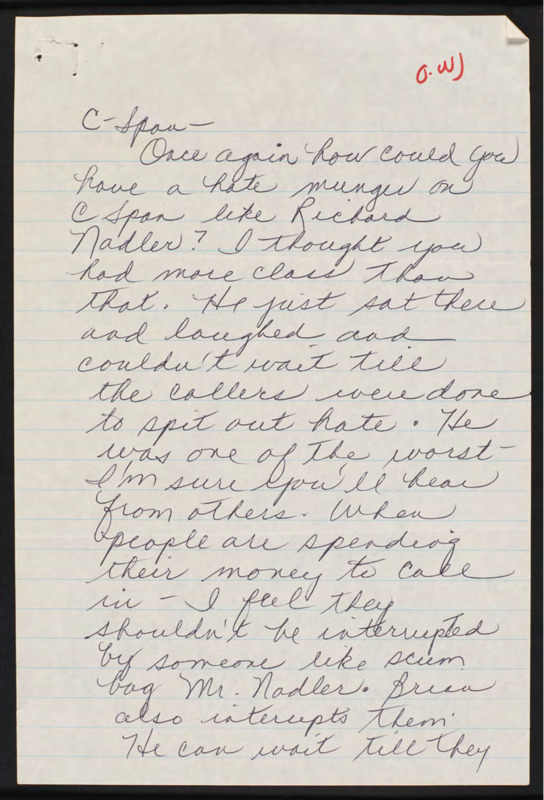 O.W)
C-Span-
Once again how could you
have a hate munger on
C Span like Richard
Nadler? I thought you
had more class than
that. He just sat there
and laughed and
couldn't wait till
the callers were done
to spit out hate. He
was one of the worst-
I'm sure you'll hear
from others. When
people are spending
their money to call
in - I feel they
shouldn't be interrupted
by someone like scum
bag Mr. Nadler. Brian
also interupts them.
He can wait till they